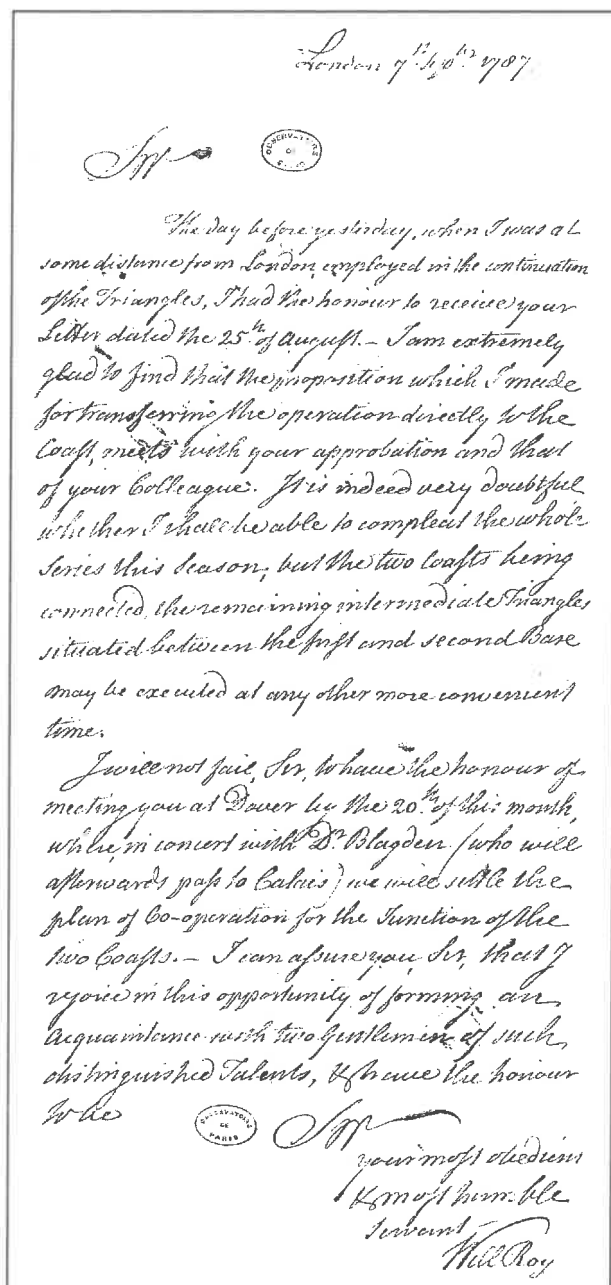 London 7th. Septr. 1787
Sir
OBSERVATOIRE
DE
PARIS
The day before yesterday, when I was at
some distance from London, employed in the continuation
of the Triangles, I had the honour to receive your
Letter dated the 25th. of August. – I am extremely
glad to find that the proposition which I made
for transferring the operation directly to the
Coast, meets with your approbation and that
of your Colleague. It is indeed very doubtful
whether I shall be able to compleat the whole
Series this Season; but the two Coasts being
connected, the remaining intermediate Triangles
situated between the first and second Base
may be executed at any other more convenient
time.
I will not fail, Sir, to have the honour of
meeting you at Dover by the 20th. of this month,
where, in concert with Dr. Blagden (who will
afterwards pass to Calais) we will settle the
plan of Co-operation for the Junction of the
two Coasts. – I can assure you, Sir, that I
rejoice in this opportunity of forming an
Acquaintance with two Gentlemen of such
distinguished Talents, & have the honour
to be
OBSERVATOIRE
DE
PARIS
Sir
your most obedient
& most humble
servant
Will Roy